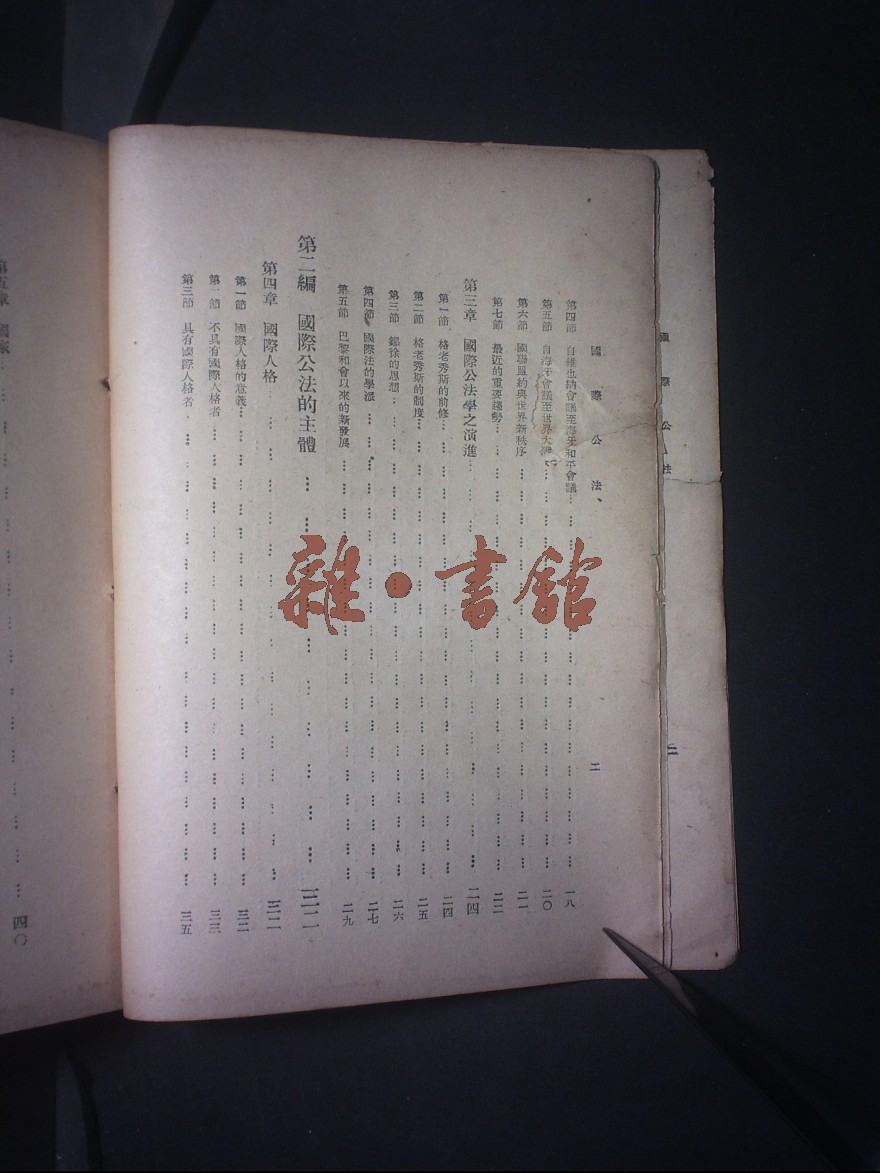 國際公法
二
第四節 自維也納會議至海牙和平會議 一八
第五節 自海牙會議至世界大戰 二〇
第六節 國聯盟約與世界新秩序 二一
第七節 最近的重要趨勢 二二
第三章 國際公法學之演進 二四
第一節 格老秀斯的前修 二四
第二節 格老秀斯的制度 二五
第三節 鄒徐的思想 二六
第四節 國際法的學派 二七
第五節 巴黎和會以來的新發展 二九
第二編 國際公法的主體 三二
第四章 國際人格 三二
第一節 國際人格的意義 三二
第二節 不具有國際人格者 三三
第三節 具有國際人格者 三五
第五章 國家 四〇
國際公法
二
雜·書館